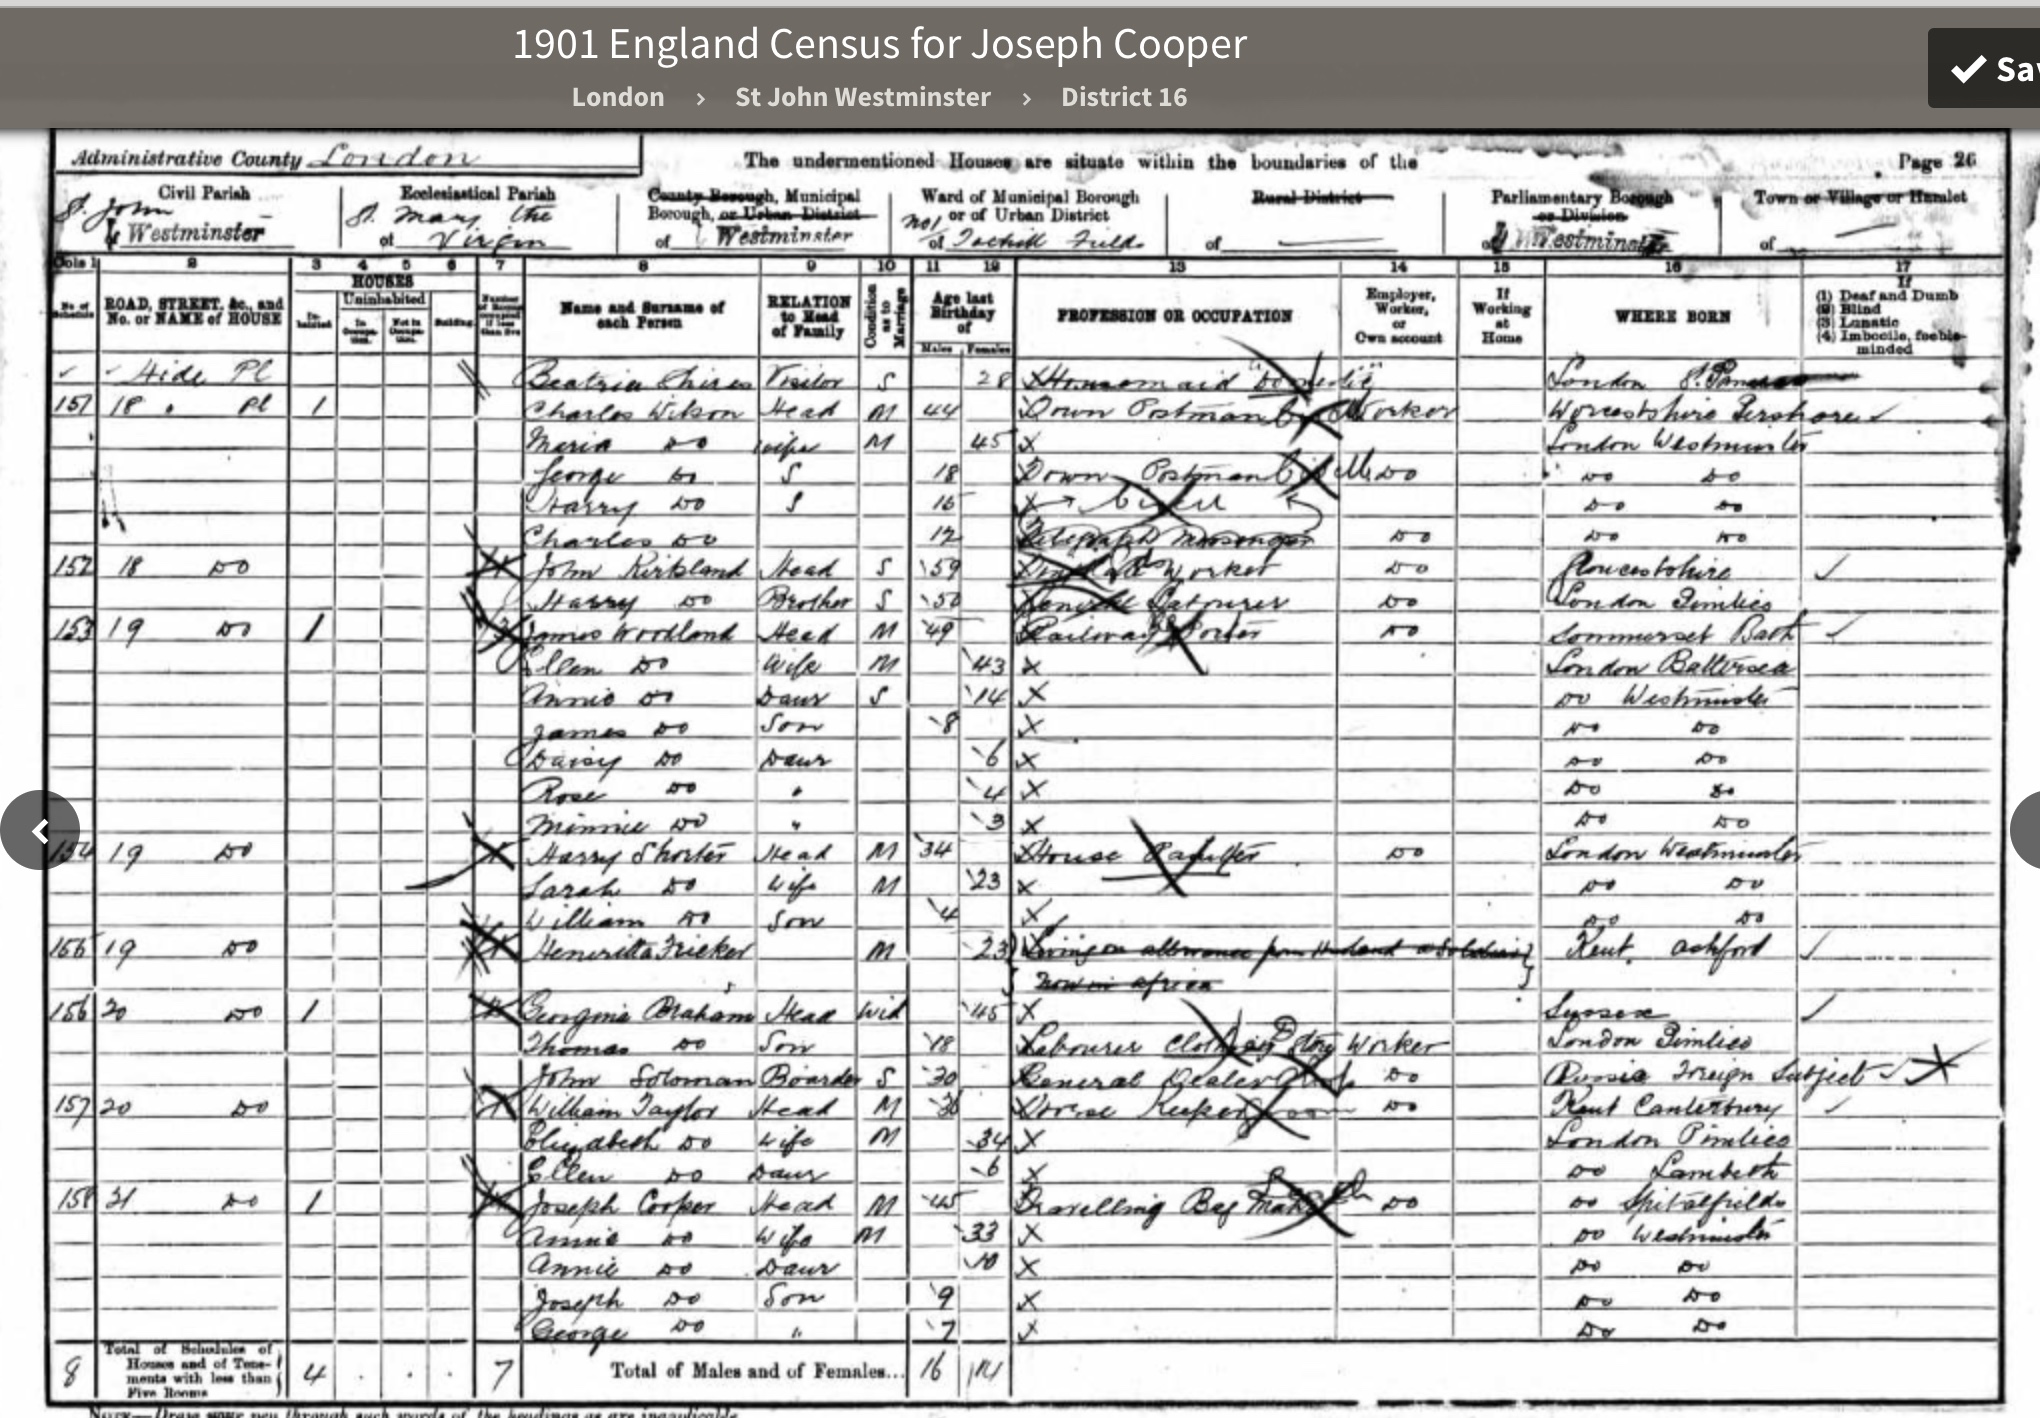 1901 England Census for Joseph Cooper
Sav
London › St John Westminster › District 16
Administrative County London
The undermentioned Houses are situate within the boundaries of the
Page 26
Civil Parish
St. John of Westminster
Ecclesiastical Parish
St. Mary the of Virgin
County Borough, Municipal Borough, or Urban District
of Westminster
Ward of Municipal Borough or of Urban District
No 1 of Tothill Fields
Rural District
of
Parliamentary Borough or Division
of Westminster
Town or Village or Hamlet
of
Cols 1 2 3 4 5 6 7 8 9 10 11 12 13 14 15 16 17
No. of Schedule
ROAD, STREET, &c., and No. or NAME of HOUSE
HOUSES
Inhabited
Uninhabited
In Occupation.
Not in Occupation.
Building.
Number of Rooms occupied if less than five
Name and Surname of each Person
RELATION to Head of Family
Condition as to Marriage
Age last Birthday of
Males Females
PROFESSION OR OCCUPATION
Employer, Worker, or Own account
If Working at Home
WHERE BORN
If
(1) Deaf and Dumb
(2) Blind
(3) Lunatic
(4) Imbecile, feeble-minded
Hide Pl Beatrice Shires Visitor S 28 Housemaid "Domestic" London St. Pancras
151 18 " Pl 1 Charles Wilson Head M 44 Town Postman Worker Worcestshire Pershore
Maria Do wife M 45 X London Westminster
George Do S 18 Town Postman Do Do Do
Harry Do S 16 X Do Do
Charles Do 12 Telegraph Messenger Do Do Do
152 18 Do 4 John Kirkland Head S 59 Worker Do Gloucestshire
Harry Do Brother S 50 General Labourer Do London Pimlico
153 19 Do 1 3 James Woodland Head M 49 Railway Porter Do Sommerset Bath
Ellen Do Wife M 43 X London Battersea
Annie Do Daur S 14 X Do Westminster
James Do Son 8 X Do Do
Daisy Do Daur 6 X Do Do
Rose Do " 4 X Do Do
Minnie Do " 3 X Do Do
154 19 Do Harry Shorter Head M 34 House Painter Do London Westminster
Sarah Do Wife M 23 X Do Do
William Do Son 4 X Do Do
155 19 Do Henrietta Fricker M 23 Living on allowance from Husband a Soldier Kent Ashford
now in africa
156 20 Do 1 Georgina Braham Head Wid 45 X Sussex
Thomas Do Son 18 Labourer Clothing Worker London Pimlico
John Soloman Boarder S 30 General Dealer Do Russia Foreign Subject
157 20 Do William Taylor Head M 36 Horse Keeper Groom Do Kent Canterbury
Elizabeth Do Wife M 34 X London Pimlico
Ellen Do Daur 6 X Do Lambeth
158 21 Do 1 Joseph Cooper Head M 45 Travelling Bag Maker Do Do Spitalfields
Annie Do Wife M 33 Do Westminster
Annie Do Daur 10 X Do Do
Joseph Do Son 9 X Do Do
George Do " 7 X Do Do
8 Total of Schedules of Houses and of Tenements with less than Five Rooms 4 7 Total of Males and of Females... 16 14
NOTE—Draw your pen through such words of the headings as are inapplicable